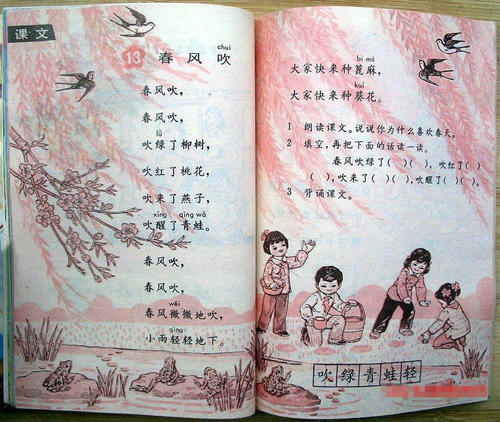 课文
chuī
13 春风吹
春风吹，
春风吹，
lǜ
吹绿了柳树，
吹红了桃花，
吹来了燕子，
xǐng qīng wā
吹醒了青蛙。
春风吹，
春风吹，
wēi
春风微微地吹，
qīng
小雨轻轻地下。
bì má
大家快来种蓖麻，
kuí
大家快来种葵花。
1 朗读课文。说说你为什么喜欢春天。
2 填空，再把下面的话读一读。
春风吹绿了( )( )，吹红了( )
( )，吹来了( )( )，吹醒了( )( )。
3 背诵课文。
吹绿青蛙轻